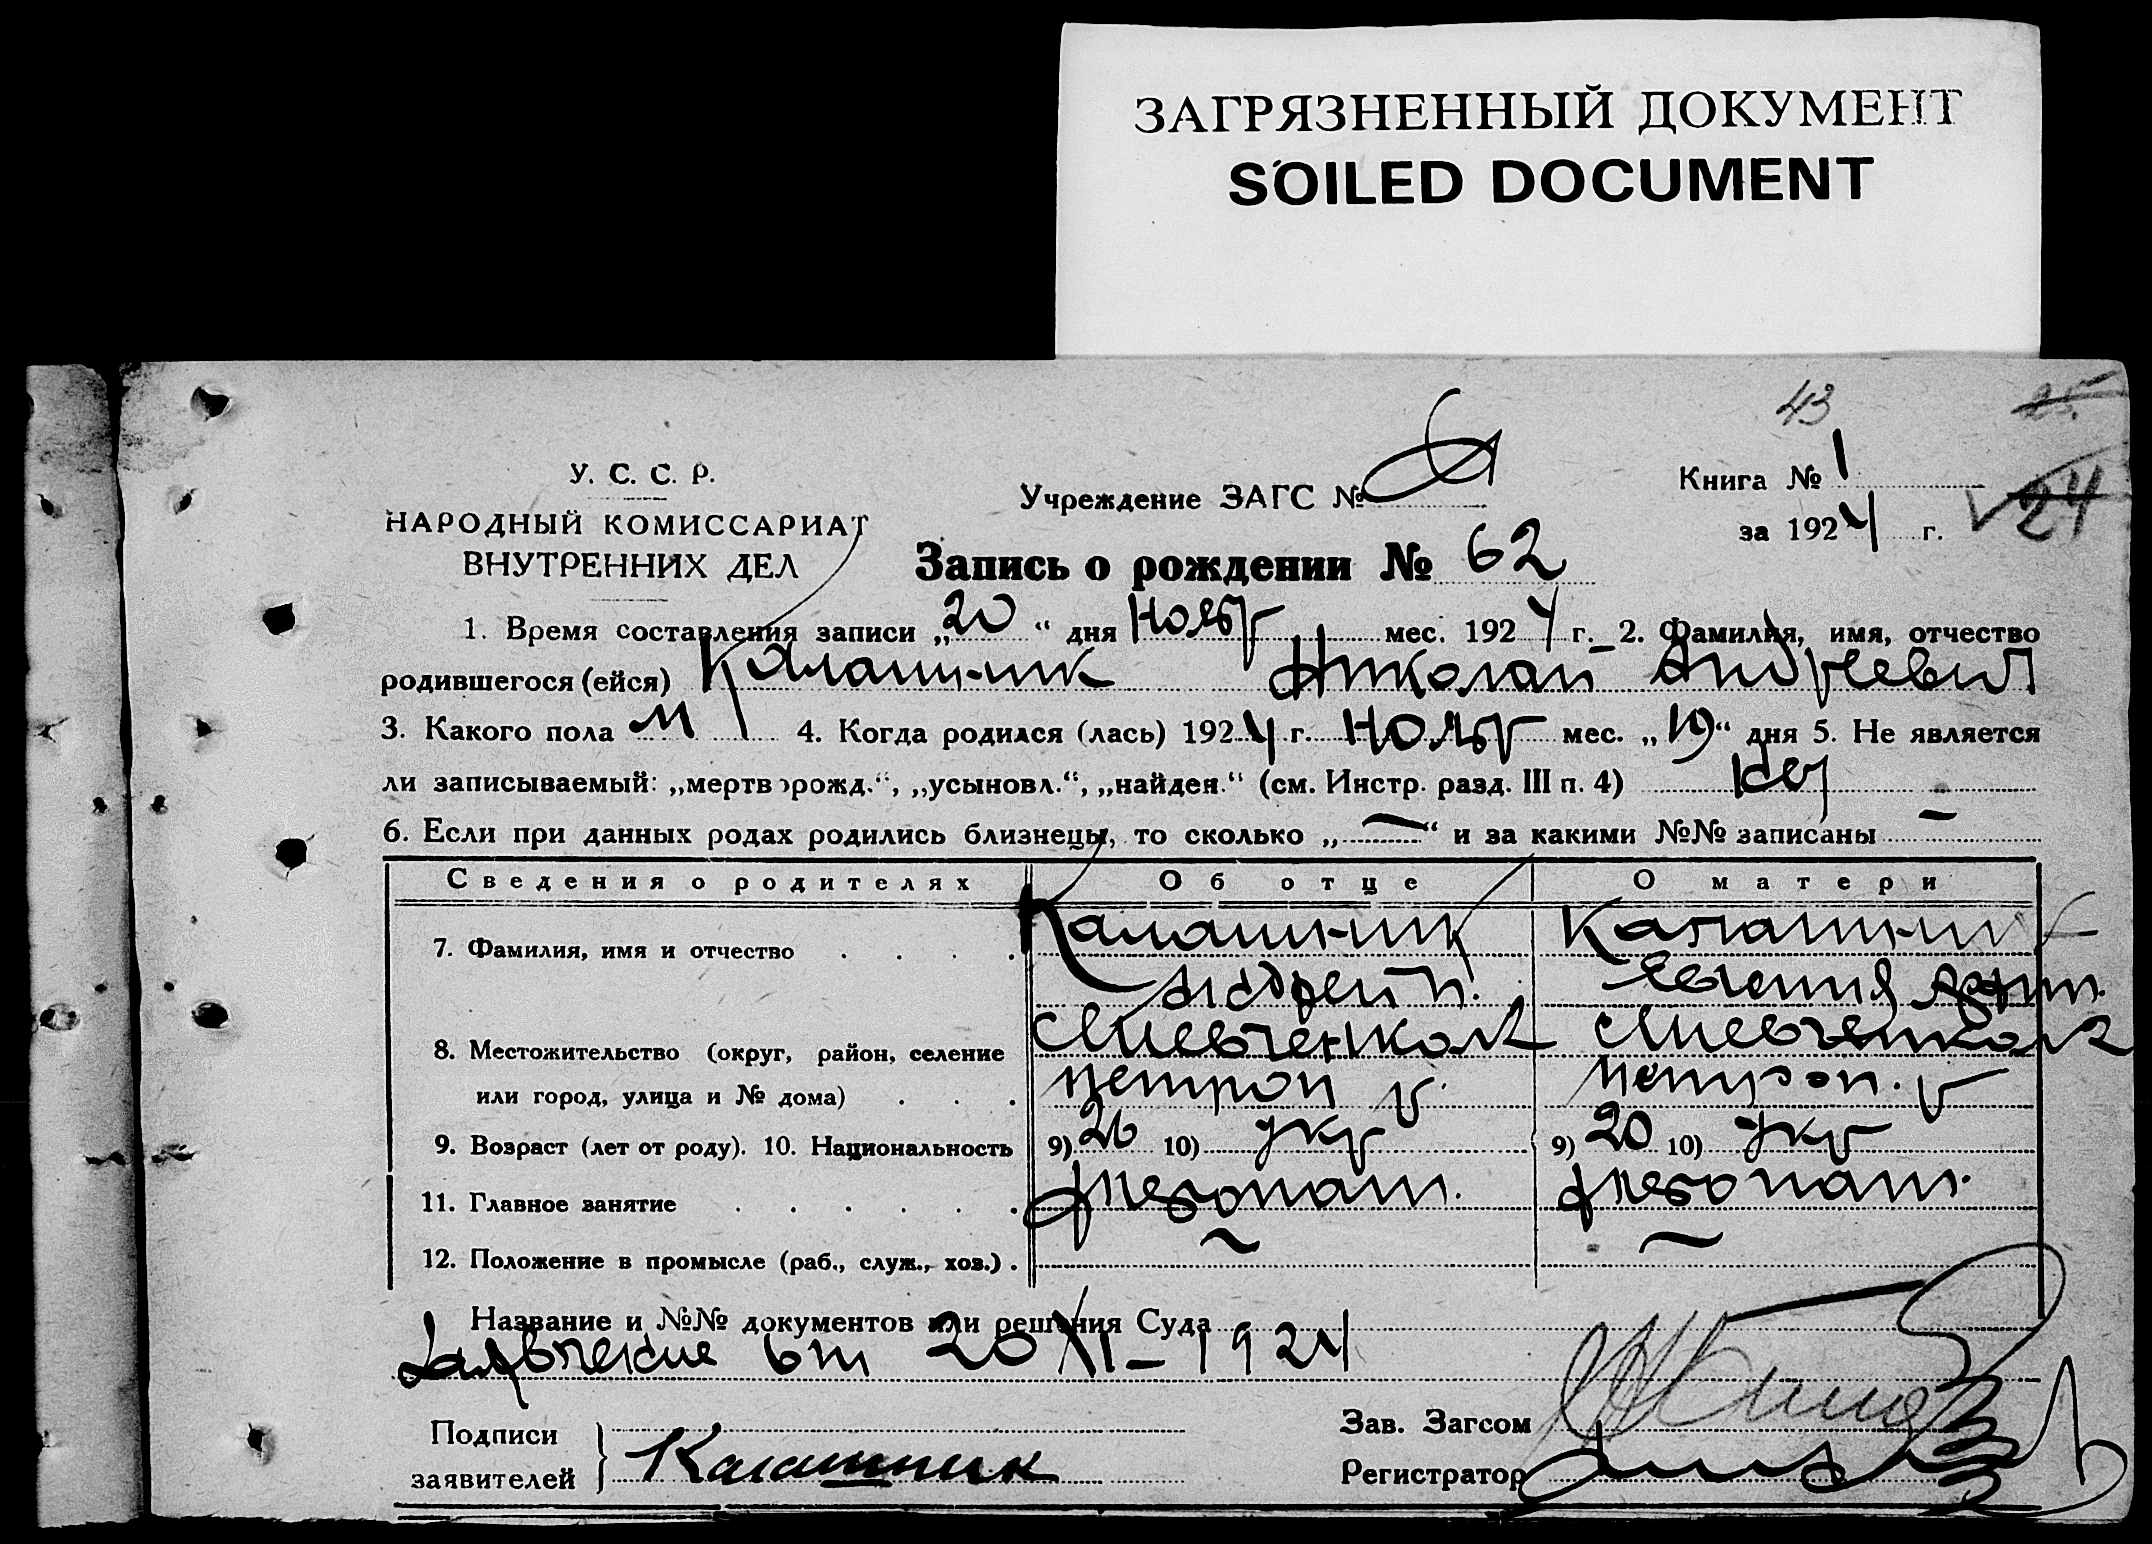 ЗАГРЯЗНЕННЫЙ ДОКУМЕНТ
SOILED DOCUMENT
43
25
У. С. С. Р.
НАРОДНЫЙ КОМИССАРИАТ
ВНУТРЕННИХ ДЕЛ
Учреждение ЗАГС №
Книга № 1
за 1924 г.
24
Запись о рождении № 62
1. Время составления записи „20“ дня Ноябр мес. 1924 г. 2. Фамилия, имя, отчество
родившегося (ейся) Калашник Николай Андреевич
3. Какого пола м 4. Когда родился (лась) 1924 г. Ноябр мес. „19“ дня 5. Не является
ли записываемый: „мертворожд.“, „усыновл.“, „найден.“ (см. Инстр. разд. III п. 4)
6. Если при данных родах родились близнецы, то сколько „—“ и за какими №№ записаны —
Сведения о родителях Об отце О матери
7. Фамилия, имя и отчество Калашник Калашник
Андрей П. Евгения
8. Местожительство (округ, район, селение
или город, улица и № дома)
9. Возраст (лет от роду). 10. Национальность 9) 26 10) укр 9) 20 10) укр
11. Главное занятие хлебопаш. хлебопаш.
12. Положение в промысле (раб., служ., хоз.) — —
Название и №№ документов или решения Суда
Заявление от 20/XI-1924
Подписи
заявителей Калашник
Зав. Загсом
Регистратор